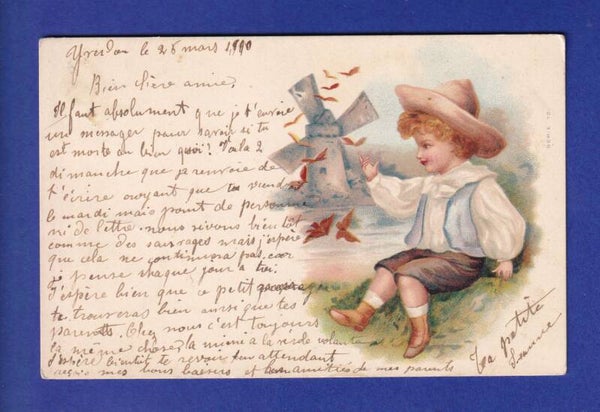 Yverdon le 26 mars 1900
Bien chère amie,
Il faut absolument que je t'envoie
un messager pour savoir si tu
est morte ou bien quoi? Voilà 2
dimanche que je renvoie de
t'écrire croyant que tu viendrais
le mardi mais point de personne
ni de lettre. nous vivons bientôt
comme des sauvages mais j'espère
que cela ne continuera pas car
je pense chaque jour à toi.
J'espère bien que ce petit messager
te trouveras bien ainsi que tes
parents. Chez nous c'est toujours
la même chose, la mienne à la
j'espère bientôt te revoir en attendant
reçois mes bons baisers et les amitiés de mes parents
Ta petite
Jeanne
SERIE 12.